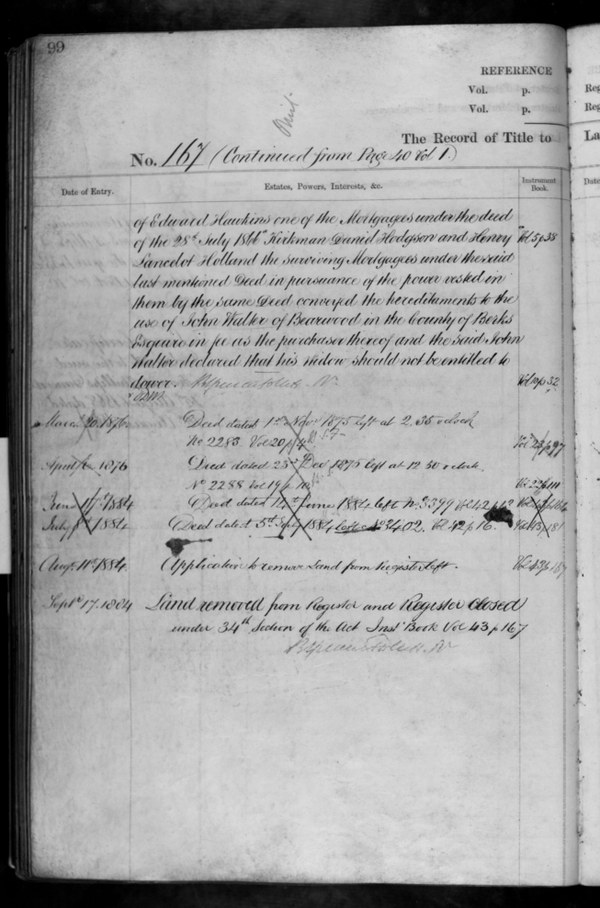 99
REFERENCE
Vol. p.
Vol. p.
The Record of Title to
No. 167 (Continued from Page 40 Vol 1.)
Date of Entry. Estates, Powers, Interests, &c. Instrument Book.
of Edward Hawkins one of the Mortgagees under the deed
of the 28th July 1866 Kirkman Daniel Hodgson and Henry Vol 5 p 38
Lancelot Holland the surviving Mortgagees under the said
last mentioned Deed in pursuance of the power vested in
them by the same Deed conveyed the hereditaments to the
use of John Walter of Bearwood in the County of Berks
Esquire in fee as the purchaser thereof and the said John
Walter declared that his widow should not be entitled to
dower. Vol 10 p 32
March 20. 1876 Deed dated 1st Nov 1875 left at 2.35 oclock
No 2283 Vol 20 p 4 Vol 23 p 97
April 1876 Deed dated 23rd Dec 1875 left at 12.50 oclock
No 2288 Vol 19 p Vol 22 p 111
June 1884 Deed dated 14th June 1884 left No 2399 Vol 42 p 12
July 1884 Deed dated 5th July 1884 left No 2402. Vol 42 p 16. Vol 43 p 181
Aug. 11th 1884. Application to remove Land from Register left. Vol 43 p 167
Septr 17. 1884 Land removed from Register and Register closed
under 34th Section of the Act Inst Book Vol 43 p 167
Reg
Reg
La
Date